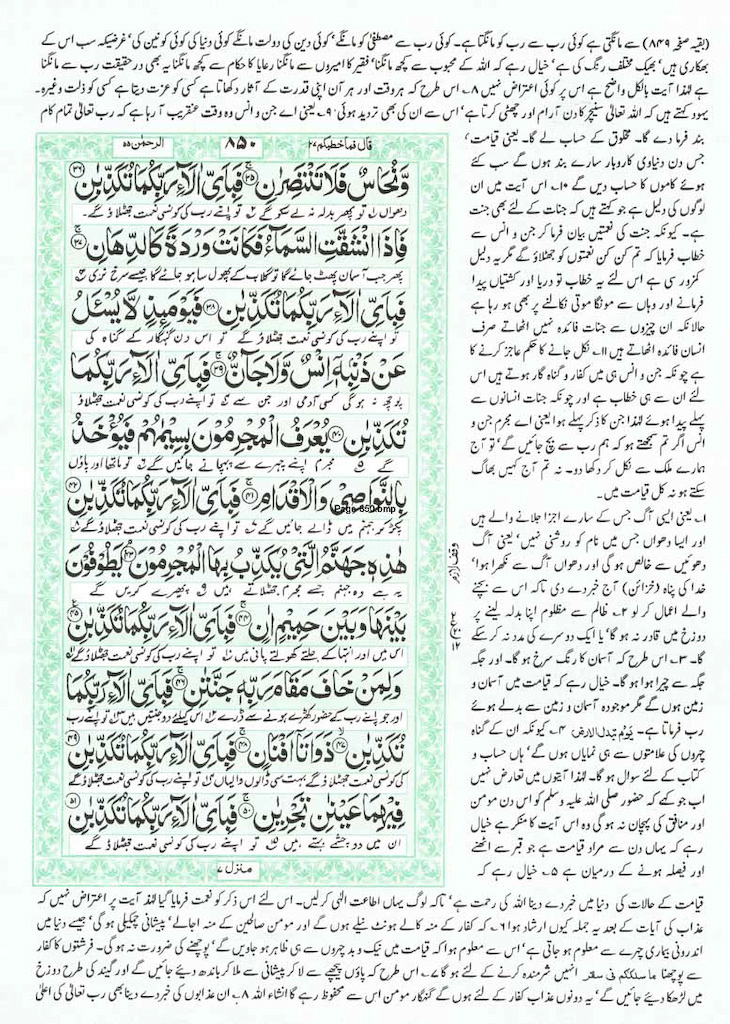 (بقیہ صفحہ ۸۴۹) سے مانگتی ہے کوئی رب سے رب کو مانگتا ہے۔ کوئی رب سے مصطفیٰ کو مانگے، کوئی دین کی دولت مانگے کوئی دنیا کی کوئی کونین کی، غرضیکہ سب اس کے
بھکاری ہیں، بھیک مختلف رنگ کی ہے، خیال رہے کہ اللہ کے محبوب سے کچھ مانگنا، فقیر کا امیروں سے مانگنا رعایا کا حکام سے کچھ مانگنا یہ بھی در حقیقت رب سے مانگنا
ہے لہذا آیت بالکل واضح ہے اس پر کوئی اعتراض نہیں ۸۔ اس طرح کہ ہر وقت اور ہر آن اپنی قدرت کے آثار دکھاتا ہے کسی کو عزت دیتا ہے کسی کو ذلت وغیرہ۔
یہود کہتے ہیں کہ اللہ تعالیٰ سنیچر کا دن آرام اور چھٹی کرتا ہے، اس سے ان کی بھی تردید ہوئی ۹۔ یعنی اے جن و انس وہ وقت عنقریب آ رہا ہے کہ رب تعالیٰ تمام کام
بند فرما دے گا۔ مخلوق کے حساب لے گا۔ یعنی قیامت،
جس دن دنیاوی کاروبار سارے بند ہوں گے سب کئے
ہوئے کاموں کا حساب دیں گے ۱۰۔ اس آیت میں ان
لوگوں کی دلیل ہے جو کہتے ہیں کہ جنات کے لئے بھی جنت
ہے۔ کیونکہ جنت کی نعمتیں بیان فرما کر جن و انس سے
خطاب فرمایا کہ تم کن کن نعمتوں کو جھٹلاؤ گے مگر یہ دلیل
کمزور سی ہے اس لئے یہ خطاب تو دریا اور کشتیاں پیدا
فرمانے اور وہاں سے مونگا موتی نکالنے پر بھی ہو رہا ہے
حالانکہ ان چیزوں سے جنات فائدہ نہیں اٹھاتے صرف
انسان فائدہ اٹھاتے ہیں ۱۱۔ نکل جانے کا حکم عاجز کرنے کا
ہے چونکہ جن و انس ہی میں کفار و گناہ گار ہوتے ہیں اس
لئے ان سے ہی خطاب ہے اور چونکہ جنات انسانوں سے
پہلے پیدا ہوئے لہذا جن کا ذکر پہلے ہوا یعنی اے مجرم جن و
انس اگر تم سمجھتے ہو کہ ہم رب سے بچ جائیں گے، تو آج
ہمارے ملک سے نکل کر دکھا دو۔ نہ تم آج کہیں بھاگ
سکتے ہو نہ کل قیامت میں۔
۱۔ یعنی ایسی آگ جس کے سارے اجزا جلانے والے ہیں
اور ایسا دھواں جس میں نام کو روشنی نہیں، یعنی آگ
دھوئیں سے خالص ہو گی اور دھواں آگ سے نکھرا ہوا،
خدا کی پناہ (خزائن) آج خبر دے دی تاکہ اس سے بچنے
والے اعمال کر لو ۲۔ ظالم سے مظلوم اپنا بدلہ لینے پر
دوزخ میں قادر نہ ہو گا، یا ایک دوسرے کی مدد نہ کر سکے
گا۔ ۳۔ اس طرح کہ آسمان کا رنگ سرخ ہو گا۔ اور جگہ
جگہ سے چیرا ہوا ہو گا۔ خیال رہے کہ قیامت میں آسمان و
زمین ہوں گے مگر موجودہ آسمان و زمین سے بدلے ہوئے
رب فرماتا ہے۔ یَوْمَ تُبَدَّلُ الْاَرْضُ ۴۔ کیونکہ ان کے گناہ
چہروں کی علامتوں سے ہی نمایاں ہوں گے، ہاں حساب و
کتاب کے لئے سوال ہو گا۔ لہذا آیتوں میں تعارض نہیں
اب جو کہے کہ حضور صلی اللہ علیہ وسلم کو اس دن مومن
اور منافق کی پہچان نہ ہو گی وہ اس آیت کا منکر ہے خیال
رہے کہ یہاں دن سے مراد قیامت ہے جو قبر سے اٹھنے
اور فیصلہ ہونے کے درمیان ہے ۵۔ خیال رہے کہ
وقف لازم
ع ۲ ۱۲
قال فما خطبکم ۲۷
۸۵۰
الرحمٰن ۵۵
وَّنُحَاسٌ فَلَا تَنْتَصِرٰنِ ﴿۳۵﴾ فَبِاَيِّ اٰلَآءِ رَبِّكُمَا تُكَذِّبٰنِ ﴿۳۶﴾
دھواں تو پھر بدلہ نہ لے سکو گے تو اپنے رب کی کونسی نعمت جھٹلاؤ گے۔
فَاِذَا انْشَقَّتِ السَّمَآءُ فَكَانَتْ وَرْدَةً كَالدِّهَانِ ﴿۳۷﴾
پھر جب آسمان پھٹ جائے گا تو گلاب کے پھول سا ہو جائے گا جیسے سرخ نری
فَبِاَيِّ اٰلَآءِ رَبِّكُمَا تُكَذِّبٰنِ ﴿۳۸﴾ فَيَوْمَئِذٍ لَّا يُسْـَٔلُ
تو اپنے رب کی کونسی نعمت جھٹلاؤ گے تو اس دن گنہگار کے گناہ کی
عَنْ ذَنْۢبِهٖٓ اِنْسٌ وَّلَا جَآنٌّ ﴿۳۹﴾ فَبِاَيِّ اٰلَآءِ رَبِّكُمَا
پوچھ نہ ہو گی کسی آدمی اور جن سے تو اپنے رب کی کونسی نعمت جھٹلاؤ
تُكَذِّبٰنِ ﴿۴۰﴾ يُعْرَفُ الْمُجْرِمُوْنَ بِسِيْمٰهُمْ فَيُؤْخَذُ
گے مجرم اپنے چہرے سے پہچانے جائیں گے تو ماتھا اور پاؤں
بِالنَّوَاصِيْ وَالْاَقْدَامِ ﴿۴۱﴾ فَبِاَيِّ اٰلَآءِ رَبِّكُمَا تُكَذِّبٰنِ ﴿۴۲﴾
Page 850.bmp
پکڑ کر جہنم میں ڈالے جائیں گے تو اپنے رب کی کونسی نعمت جھٹلاؤ گے
هٰذِهٖ جَهَنَّمُ الَّتِيْ يُكَذِّبُ بِهَا الْمُجْرِمُوْنَ ﴿۴۳﴾ يَطُوْفُوْنَ
یہ ہے وہ جہنم جسے مجرم جھٹلاتے ہیں پھیرے کریں گے
بَيْنَهَا وَبَيْنَ حَمِيْمٍ اٰنٍ ﴿۴۴﴾ فَبِاَيِّ اٰلَآءِ رَبِّكُمَا تُكَذِّبٰنِ ﴿۴۵﴾
اس میں اور انتہا کے جلتے کھولتے پانی میں تو اپنے رب کی کونسی نعمت جھٹلاؤ گے
وَلِمَنْ خَافَ مَقَامَ رَبِّهٖ جَنَّتٰنِ ﴿۴۶﴾ فَبِاَيِّ اٰلَآءِ رَبِّكُمَا
اور جو اپنے رب کے حضور کھڑے ہونے سے ڈرے اس کیلئے دو جنتیں ہیں تو اپنے رب
تُكَذِّبٰنِ ﴿۴۷﴾ ذَوَاتَآ اَفْنَانٍ ﴿۴۸﴾ فَبِاَيِّ اٰلَآءِ رَبِّكُمَا تُكَذِّبٰنِ ﴿۴۹﴾
کی کونسی نعمت جھٹلاؤ گے بہت سی ڈالوں والیاں تو اپنے رب کی کونسی نعمت جھٹلاؤ گے
فِيْهِمَا عَيْنٰنِ تَجْرِيٰنِ ﴿۵۰﴾ فَبِاَيِّ اٰلَآءِ رَبِّكُمَا تُكَذِّبٰنِ ﴿۵۱﴾
ان میں دو چشمے بہتے ہیں تو اپنے رب کی کونسی نعمت جھٹلاؤ گے
منزل ۷
قیامت کے حالات کی دنیا میں خبر دے دینا اللہ کی رحمت ہے، تاکہ لوگ یہاں اطاعت الٰہی کرلیں۔ اس لئے اس ذکر کو نعمت فرمایا گیا لہذا آیت پر اعتراض نہیں کہ
عذاب کی آیات کے بعد یہ جملہ کیوں ارشاد ہوا ۶۔ کہ کفار کے منہ کالے ہونٹ نیلے ہوں گے اور مومن صالحین کے منہ اجالے، پیشانی چمکیلی ہو گی، جیسے دنیا میں
اندرونی بیماری چہرے سے معلوم ہو جاتی ہے، اس سے معلوم ہوا کہ قیامت میں نیک و بد چہروں سے ہی ظاہر ہو جاویں گے، پوچھنے کی ضرورت نہ ہو گی۔ فرشتوں کا کفار
سے پوچھنا مَا سَلَكَكُمْ فِيْ سَقَرَ انہیں شرمندہ کرنے کے لئے ہو گا ۷۔ اس طرح کہ پاؤں پیچھے سے لا کر پیشانی سے ملا کر باندھ دیئے جائیں گے اور گیند کی طرح دوزخ
میں لڑھکا دیئے جائیں گے، یہ دونوں عذاب کفار کے لئے ہوں گے گنہگار مومن اس سے محفوظ رہے گا انشاء اللہ ۸۔ ان عذابوں کی خبر دے دینا بھی رب تعالیٰ کی اعلیٰ